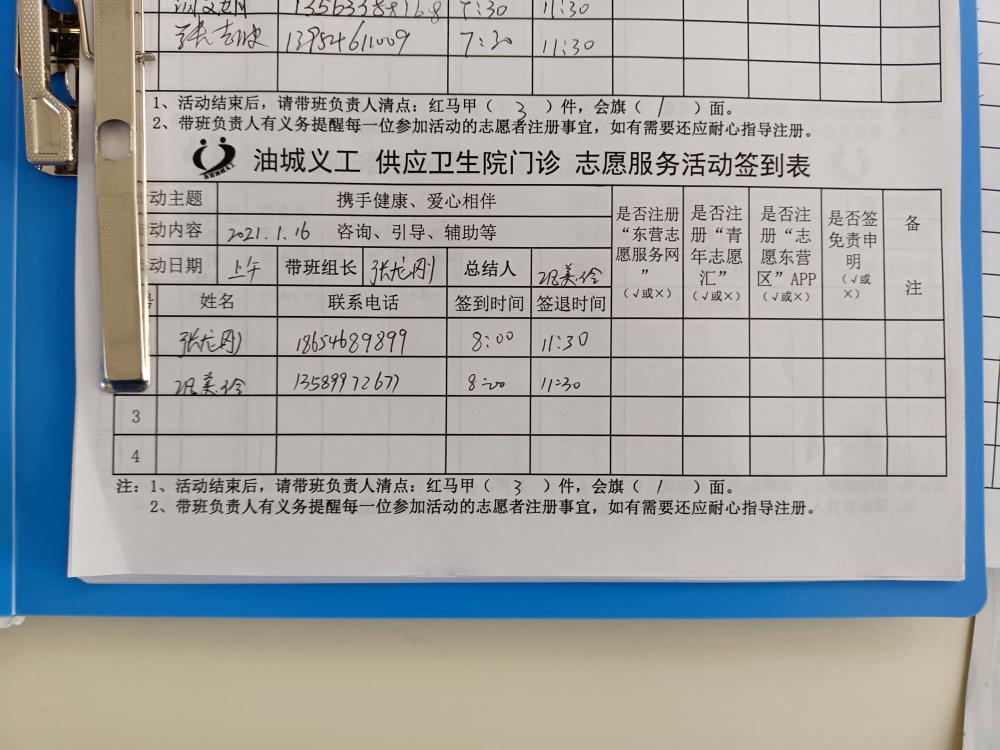 7:30 11:30
13954611009 7:30 11:30
1、活动结束后，请带班负责人清点：红马甲（ 3 ）件，会旗（ 1 ）面。
2、带班负责人有义务提醒每一位参加活动的志愿者注册事宜，如有需要还应耐心指导注册。
油城义工 供应卫生院门诊 志愿服务活动签到表
动主题 携手健康、爱心相伴 是否注册“东营志愿服务网”（√或×） 是否注册“青年志愿汇”（√或×） 是否注册“志愿东营区”APP（√或×） 是否签免责申明（√或×） 备注
动内容 2021.1.16 咨询、引导、辅助等
动日期 上午 带班组长 张龙刚 总结人 巩美玲
号 姓名 联系电话 签到时间 签退时间
张龙刚 18654689899 8:00 11:30
巩美玲 13589972677 8:00 11:30
3
4
注：1、活动结束后，请带班负责人清点：红马甲（ 3 ）件，会旗（ 1 ）面。
2、带班负责人有义务提醒每一位参加活动的志愿者注册事宜，如有需要还应耐心指导注册。